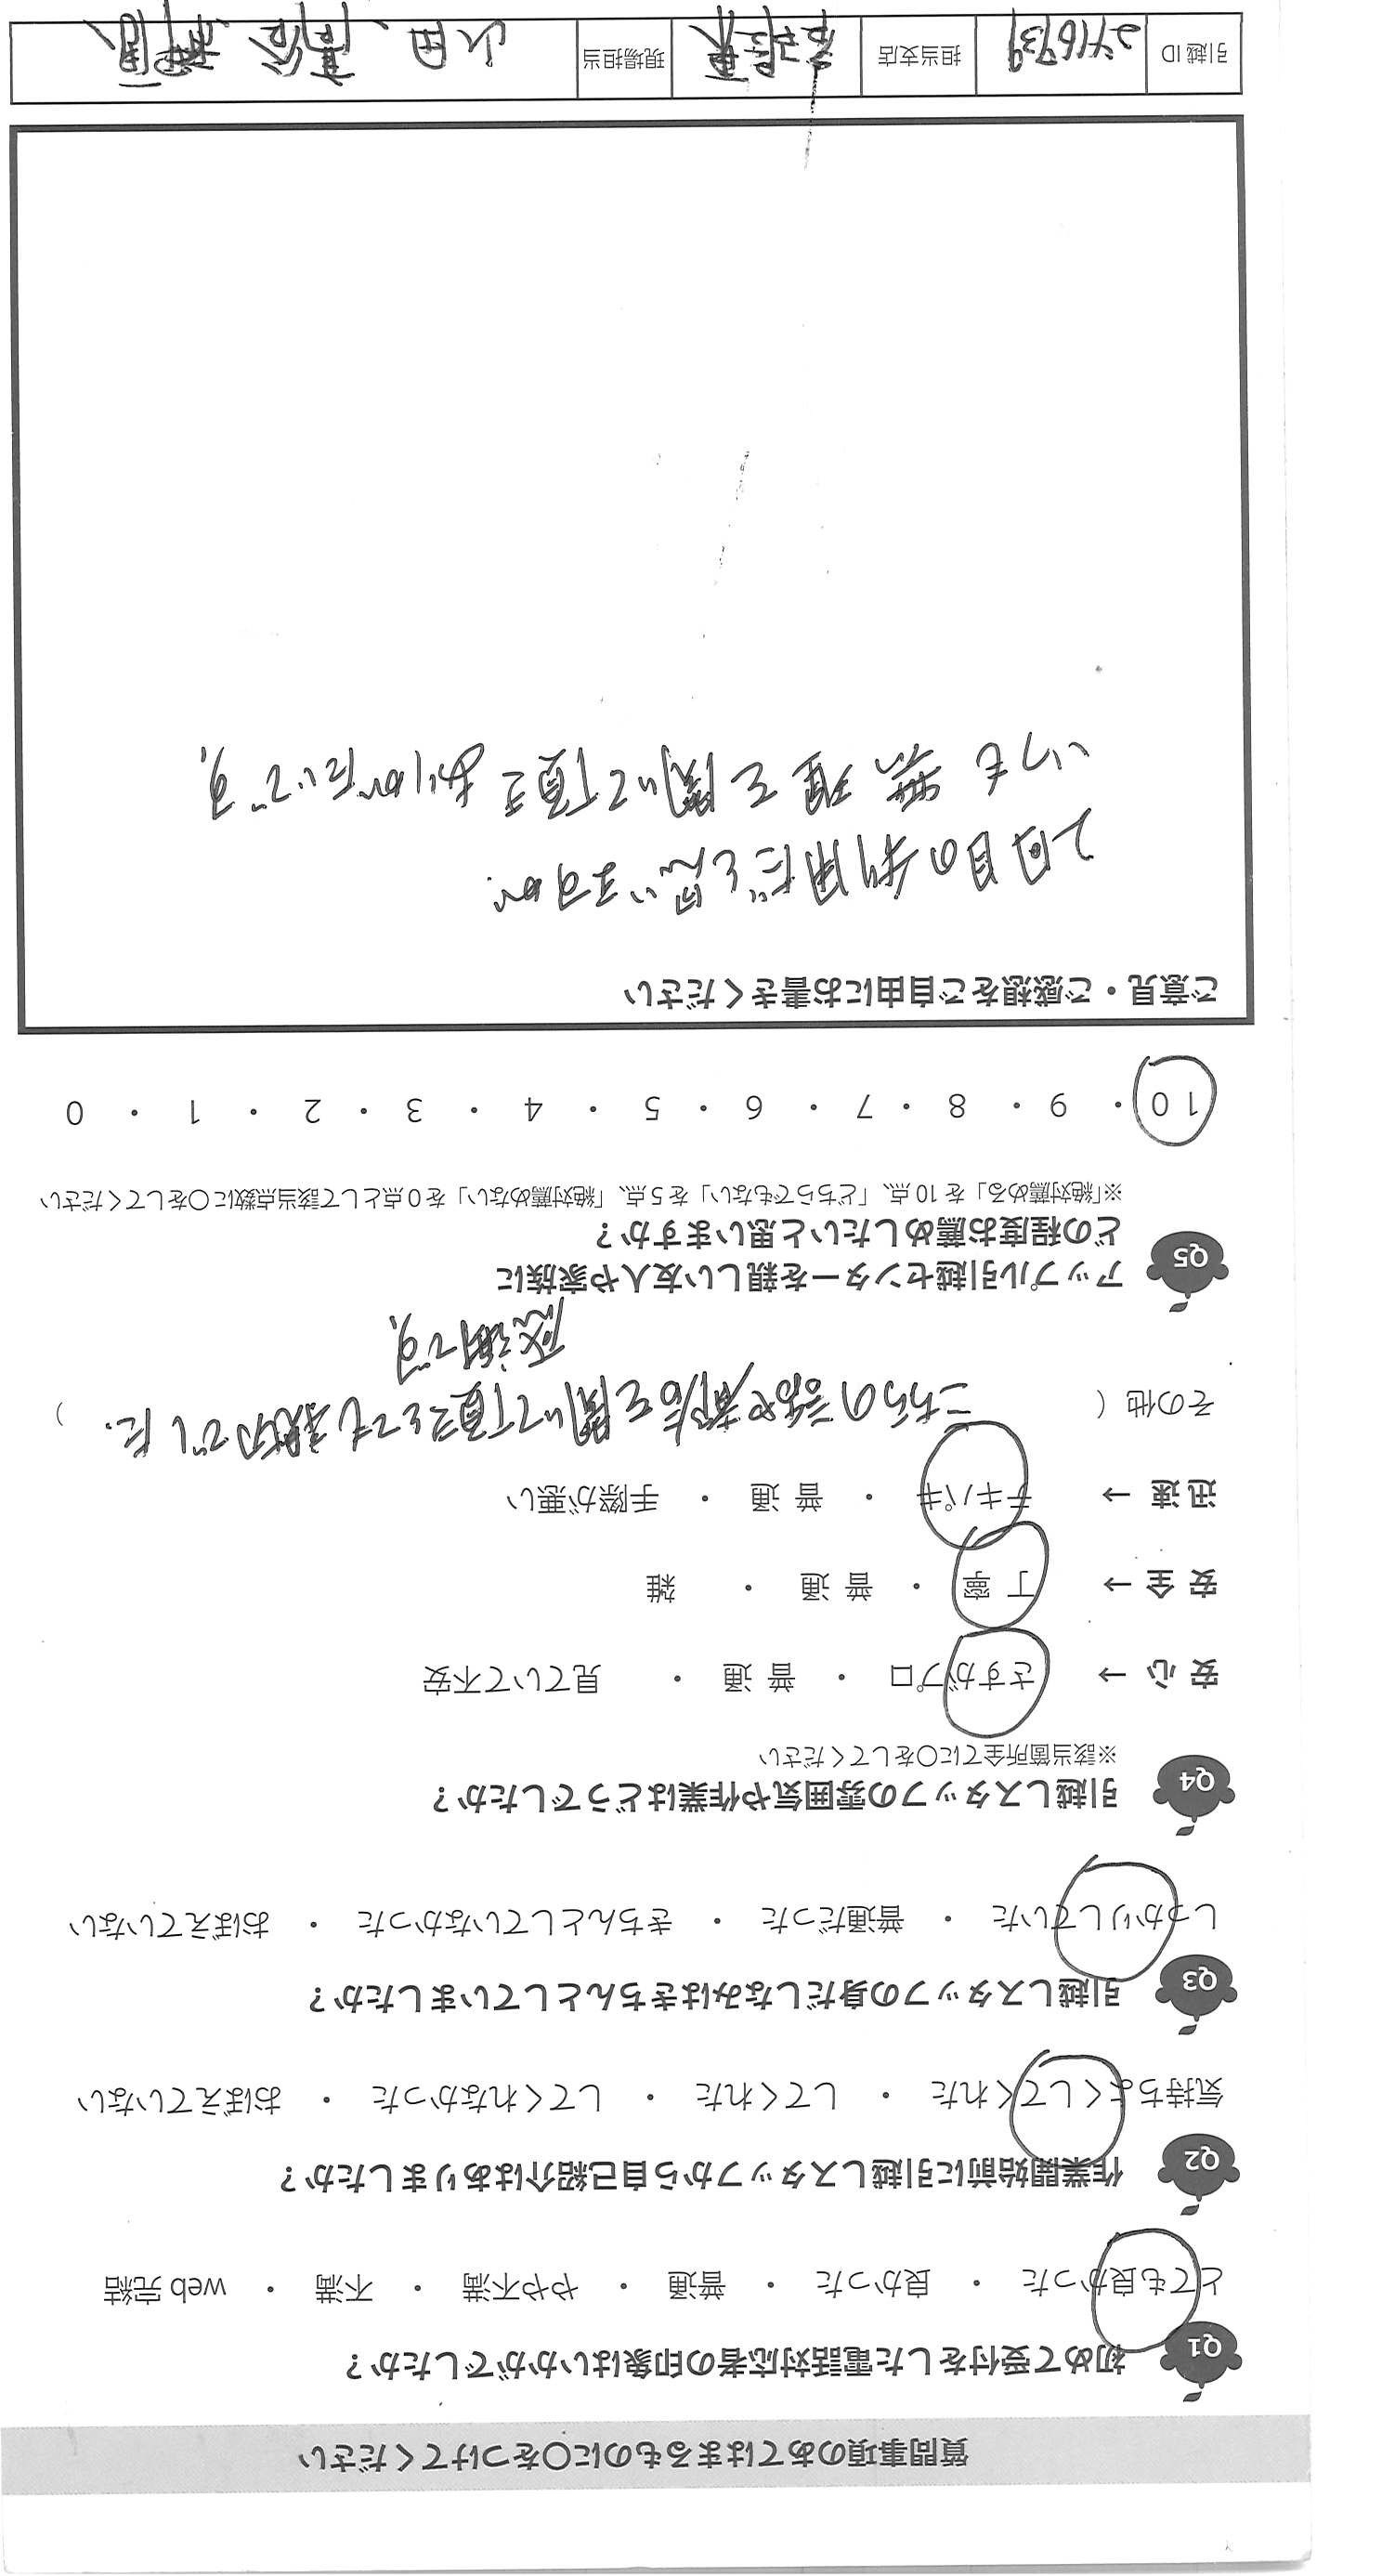 質問事項のあてはまるものに〇をつけてください
Q1 初めて受付をした電話対応者の印象はいかがでしたか？
とても良かった ・ 良かった ・ 普通 ・ やや不満 ・ 不満 ・ web 完結
Q2 作業開始前に引越しスタッフから自己紹介はありましたか？
気持ちよくしてくれた ・ してくれた ・ してくれなかった ・ おぼえていない
Q3 引越しスタッフの身だしなみはきちんとしていましたか？
しっかりしていた ・ 普通だった ・ きちんとしていなかった ・ おぼえていない
Q4 引越しスタッフの雰囲気や作業はどうでしたか？
※該当箇所全てに〇をしてください
安 心 → さすがプロ ・ 普 通 ・ 見ていて不安
安 全 → 丁 寧 ・ 普 通 ・ 雑
迅 速 → テキパキ ・ 普 通 ・ 手際が悪い
その他 ( こちらの話や都合を聞いて頂きとても親切でした. )
感謝です。
Q5 アップル引越センターを親しい友人や家族に
どの程度お薦めしたいと思いますか？
※「絶対薦める」を 10 点、「どちらでもない」を 5 点、「絶対薦めない」を 0 点として該当点数に〇をしてください
10 ・ 9 ・ 8 ・ 7 ・ 6 ・ 5 ・ 4 ・ 3 ・ 2 ・ 1 ・ 0
ご意見・ご感想をご自由にお書きください
2回目の利用だと思いますが、
いつも無理を聞いて頂きありがたいです。
引越 ID 2416739 担当支店 現場担当 山田、